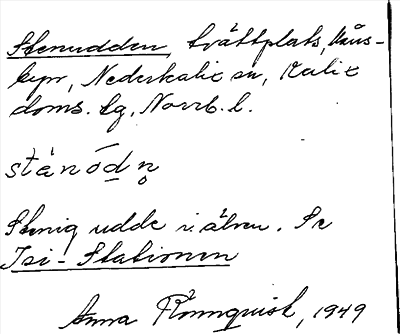 Stenudden, tvättplats, Näs-
byn, Nederkalix sn, Kalix
doms. lg, Norrb. l.
stànṓd̲n̥
Stenig udde i älven. Se
Isi-Stationen
Anna Rönnquist, 1949